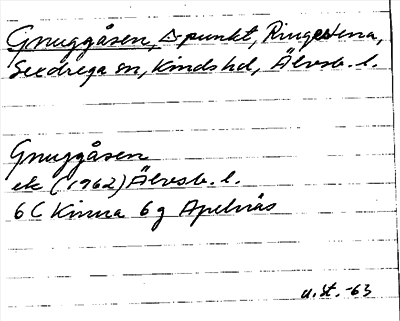 Gnuggåsen, △-punkt, Ringestena,
Sexdrega sn, Kinds hd, Älvsb. l.
Gnuggåsen
ek (1962) Älvsb. l.
6C Kinna 6g Apelnäs
u.st. -63